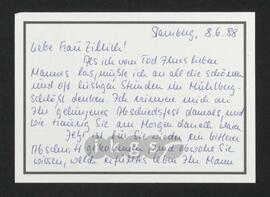 Hamburg, 8.6.88
Liebe Frau Zillich!
Als ich vom Tod Ihres lieben
Mannes las, mußte ich an all die schönen
und oft lustigen Stunden im Mühlberg-
schlößl denken. Ich erinnere mich an
Ihr gelungenes Abschiedsfest damals, und
wie traurig Sie am Morgen danach waren.
Jetzt ist für Sie wieder ein bitterer
Abschied gekommen. Und obwohl Sie
wissen, welch erfülltes Leben Ihr Mann